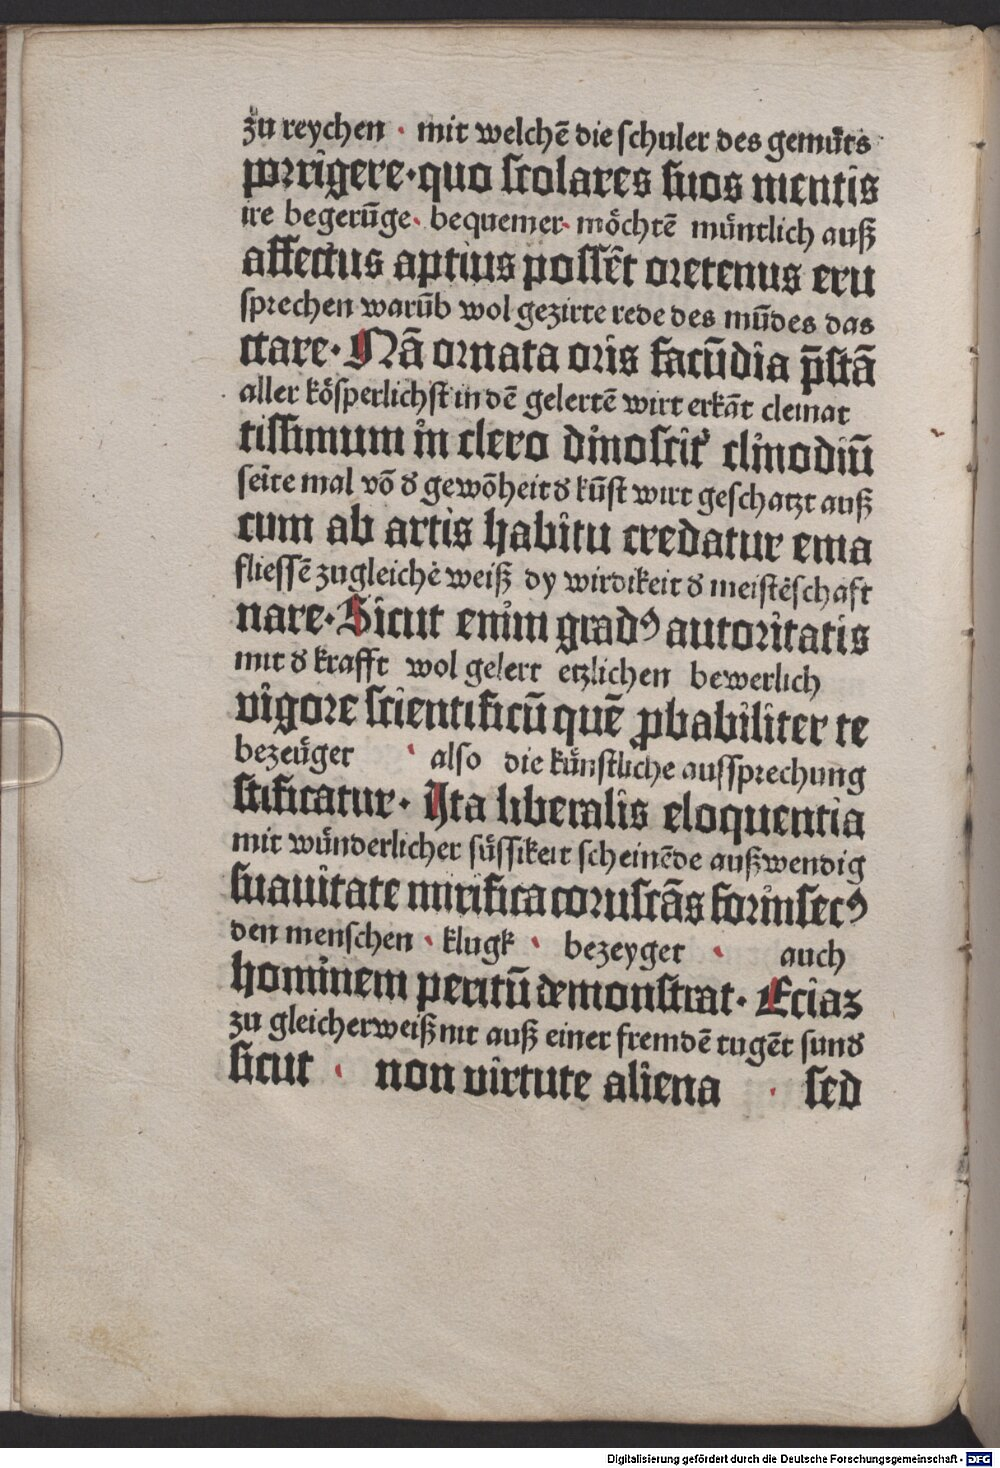 zu reychen · mit welchē die schuler des gemu̇ts
porrigere · quo scolares suos mentis
ire begerūge · bequemer · möchtē müntlich auß
affectus aptius possēt oretenus eru
sprechen warūb wol gezirte rede des mūdes das
ctare · Nā ornata oris facūdia p̄stā
aller kösperlichst in dē gelertē wirt erkāt cleinat
tissimum in clero dinoscit᷑ clinodiū
seite mal vō d᷑ gewōheit d᷑ kūst wirt geschatzt auß
cum ab artis habitu credatur ema
fliessē zu gleichė weiß dy wirdikeit d᷑ meistėschaft
nare · Sicut enim gradꝰ autoritatis
mit d᷑ krafft wol gelert etzlichen bewerlich
vigore scientificū quē ꝓbabiliter te
bezeüger · also die künstliche aussprechung
stificatur · Ita liberalis eloquentia
mit wünderlicher süssikeit scheinēde außwendig
suauitate mirifica coruscās forinsecꝰ
den menschen · klugk · bezeyger · auch
hominem peritū demonstrat · Eciaz
zu gleicherweiß nit auß einer fremdē tugēt sund᷑
sicut · non virtute aliena · sed
Digitalisierung gefördert durch die Deutsche Forschungsgemeinschaft - DFG